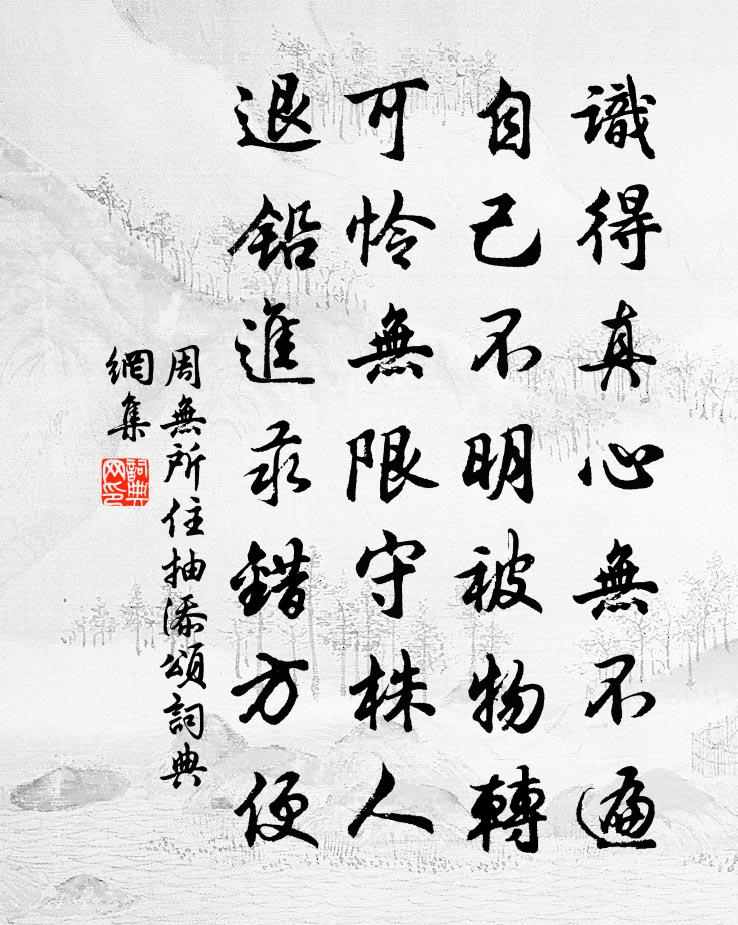 識得真心無不遍
自己不明被物轉
可憐無限守株人
退鉛進汞錯方便
周無所住抽添頌詞典
網集
詞典
网印